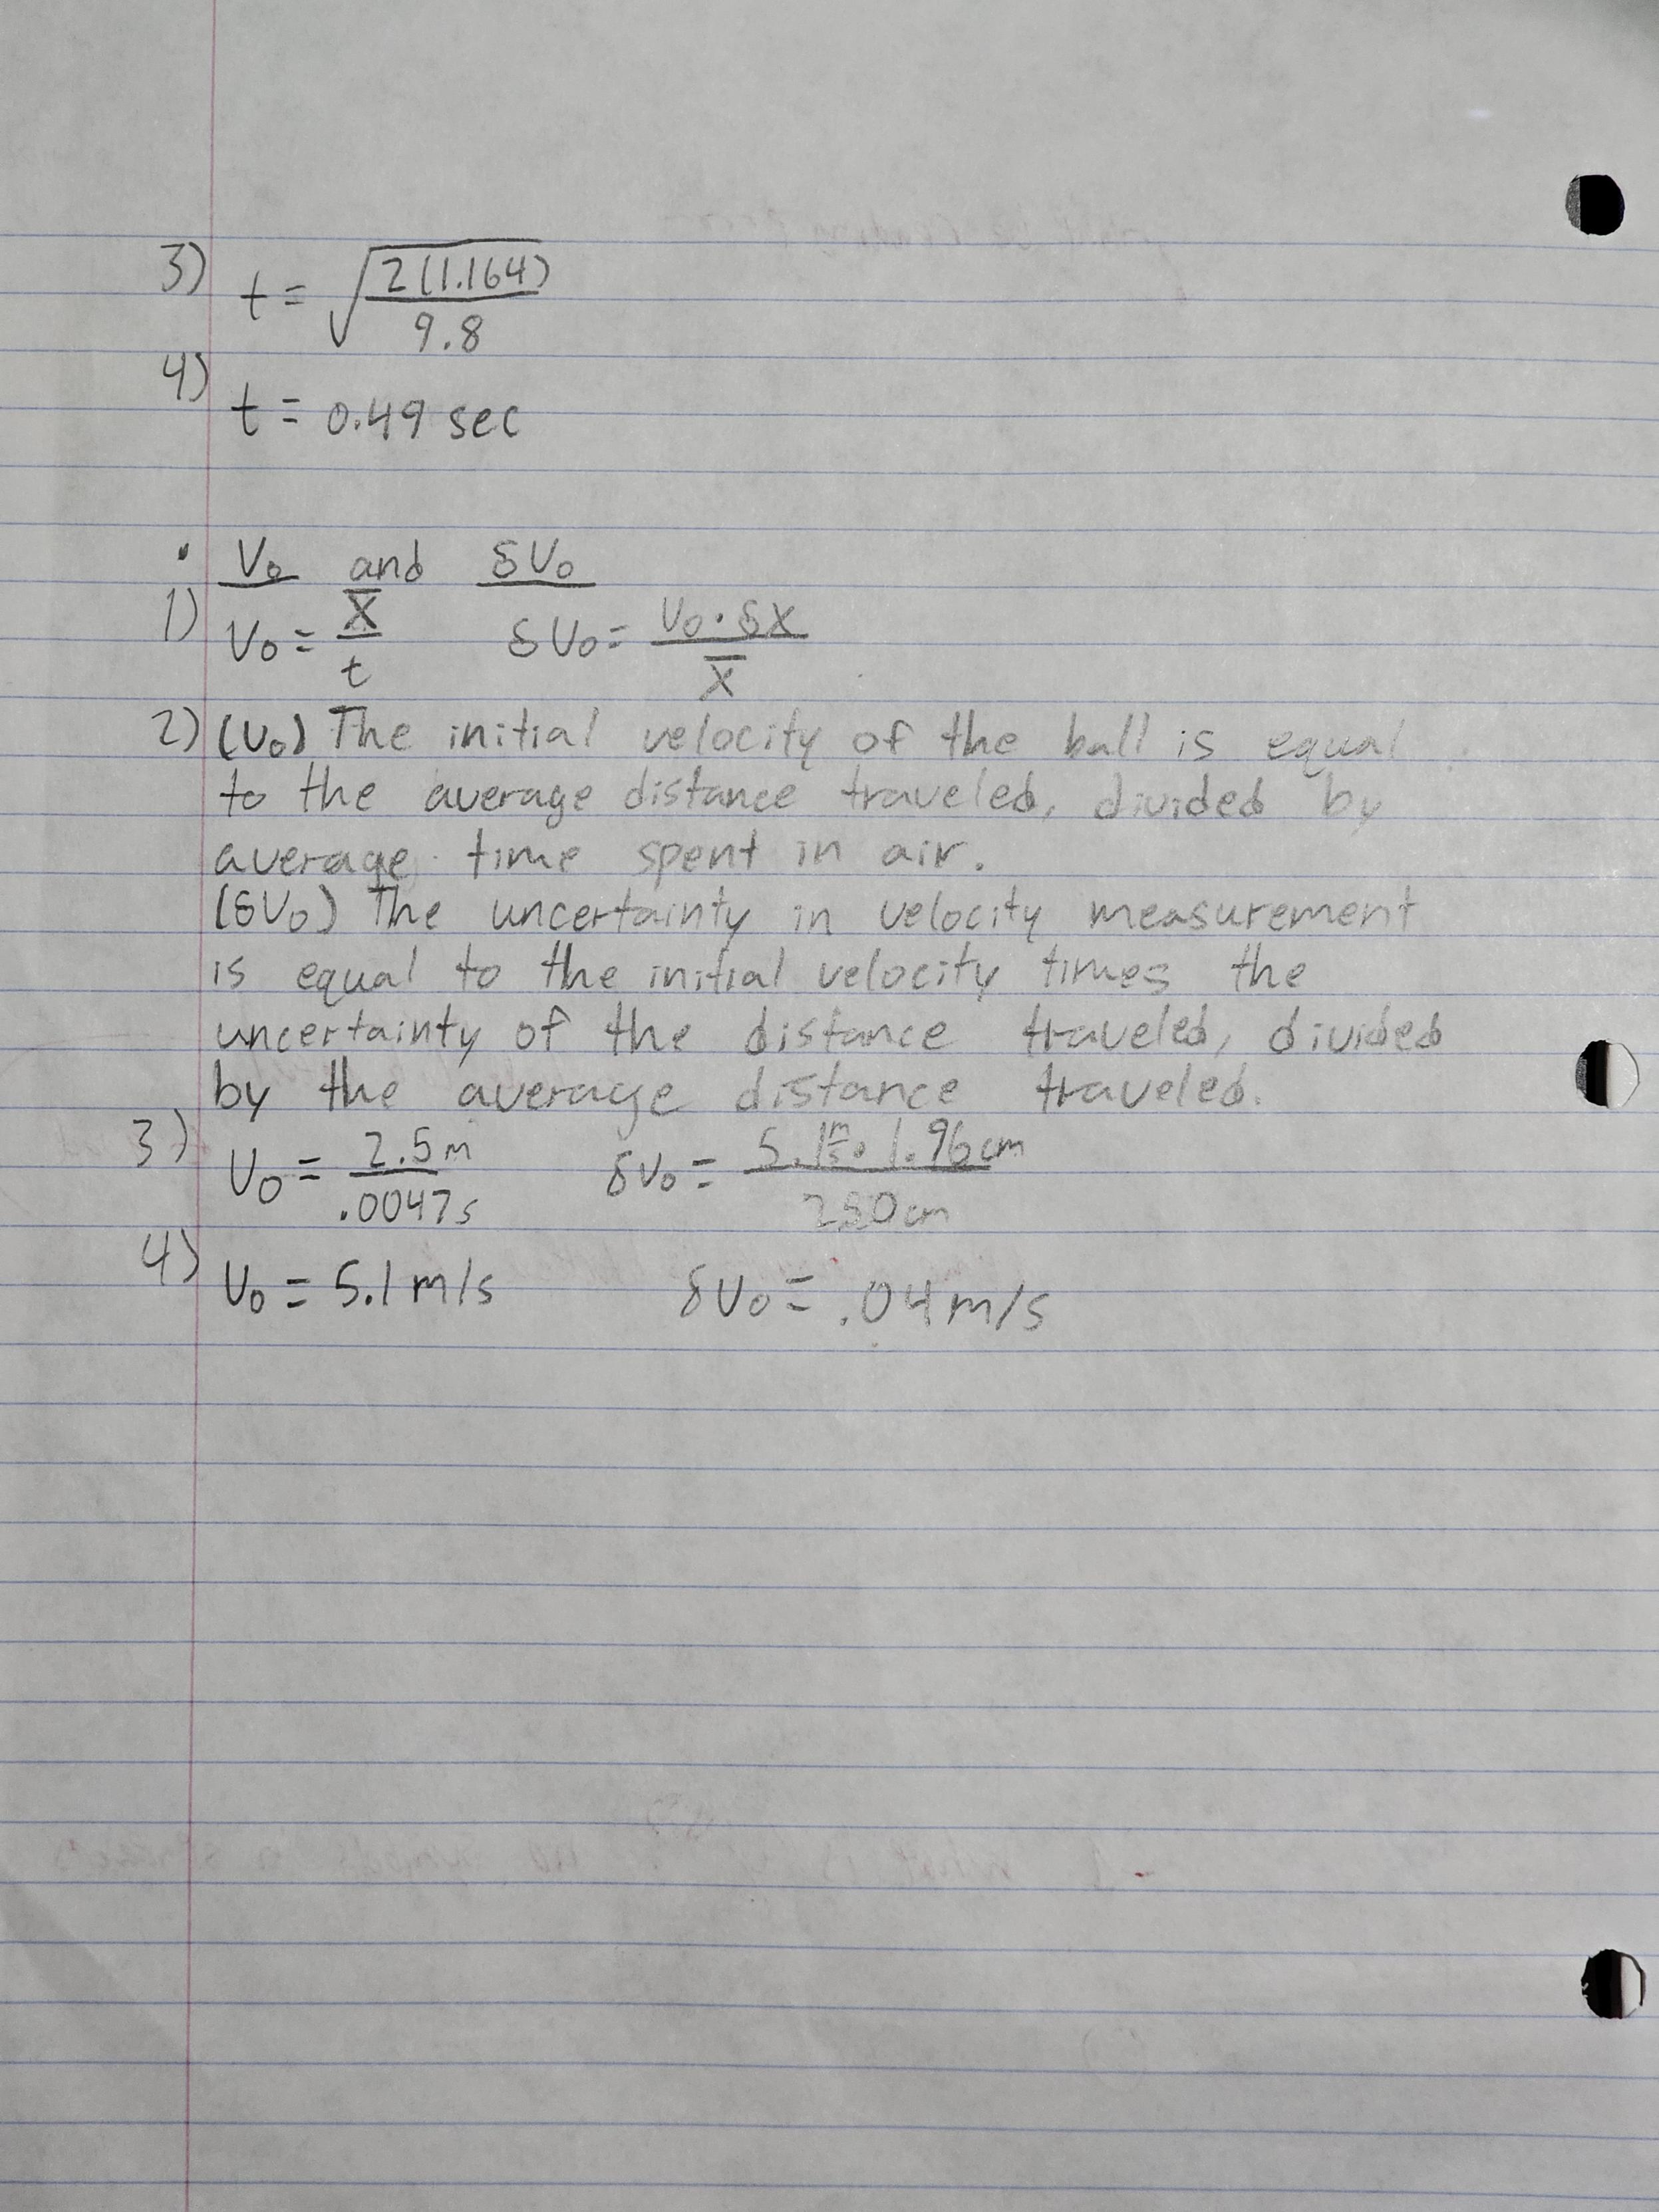 3) t = √(2(1.164)/9.8)
4) t = 0.49 sec
• V₀ and δV₀
1) V₀ = x̄/t δV₀ = V₀·δx/x̄
2) (V₀) The initial velocity of the ball is equal
to the average distance traveled, divided by
average time spent in air.
(δV₀) The uncertainty in velocity measurement
is equal to the initial velocity times the
uncertainty of the distance traveled, divided
by the average distance traveled.
3) V₀ = 2.5m/.0047s δV₀ = 5.1 m/s · 1.96cm/250cm
4) V₀ = 5.1 m/s δV₀ = .04 m/s